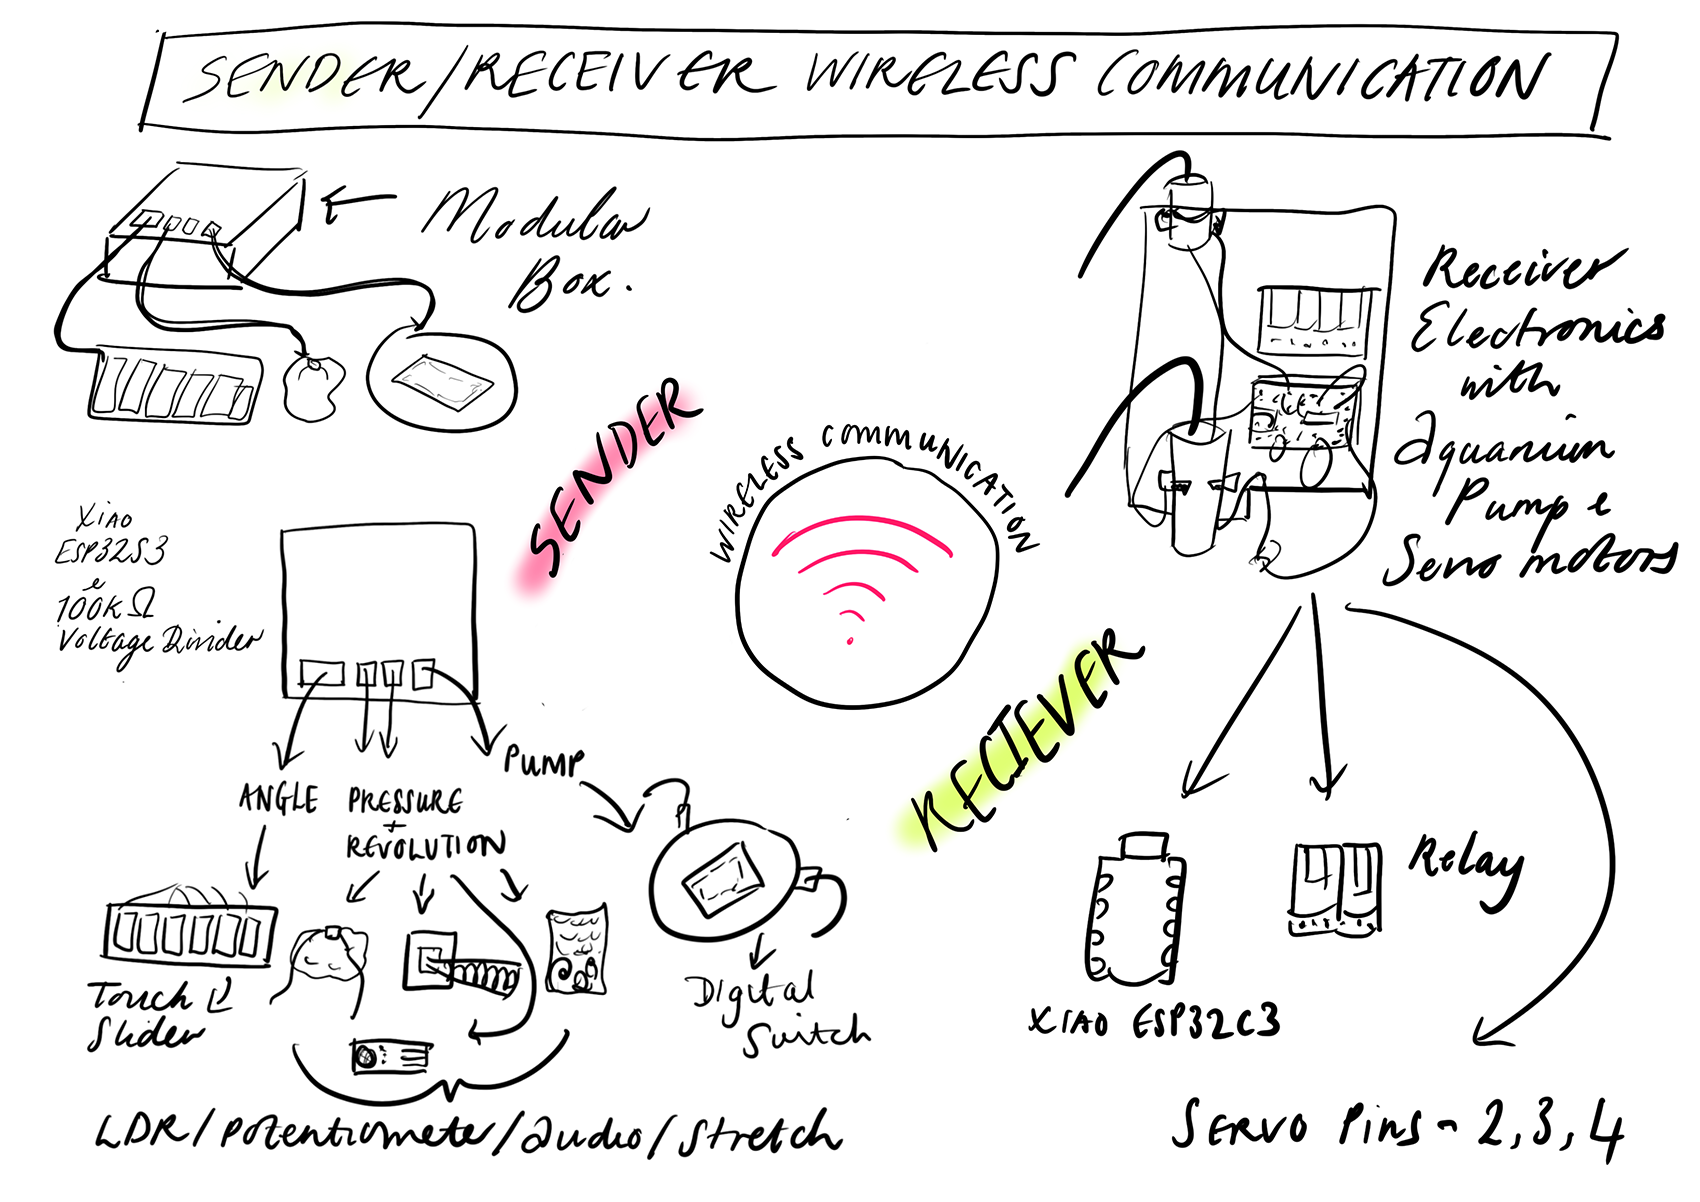 SENDER/RECEIVER WIRELESS COMMUNICATION
Modular
Box.
Receiver
Electronics
with
Aquarium
Pump &
Servo motors
SENDER
WIRELESS COMMUNICATION
RECIEVER
XIAO
ESP32S3
&
100KΩ
Voltage Divider
ANGLE
PRESSURE
+
REVOLUTION
PUMP
Touch
Slider
Digital
Switch
LDR/potentiometer/audio/stretch
XIAO ESP32C3
Relay
SERVO Pins - 2,3,4